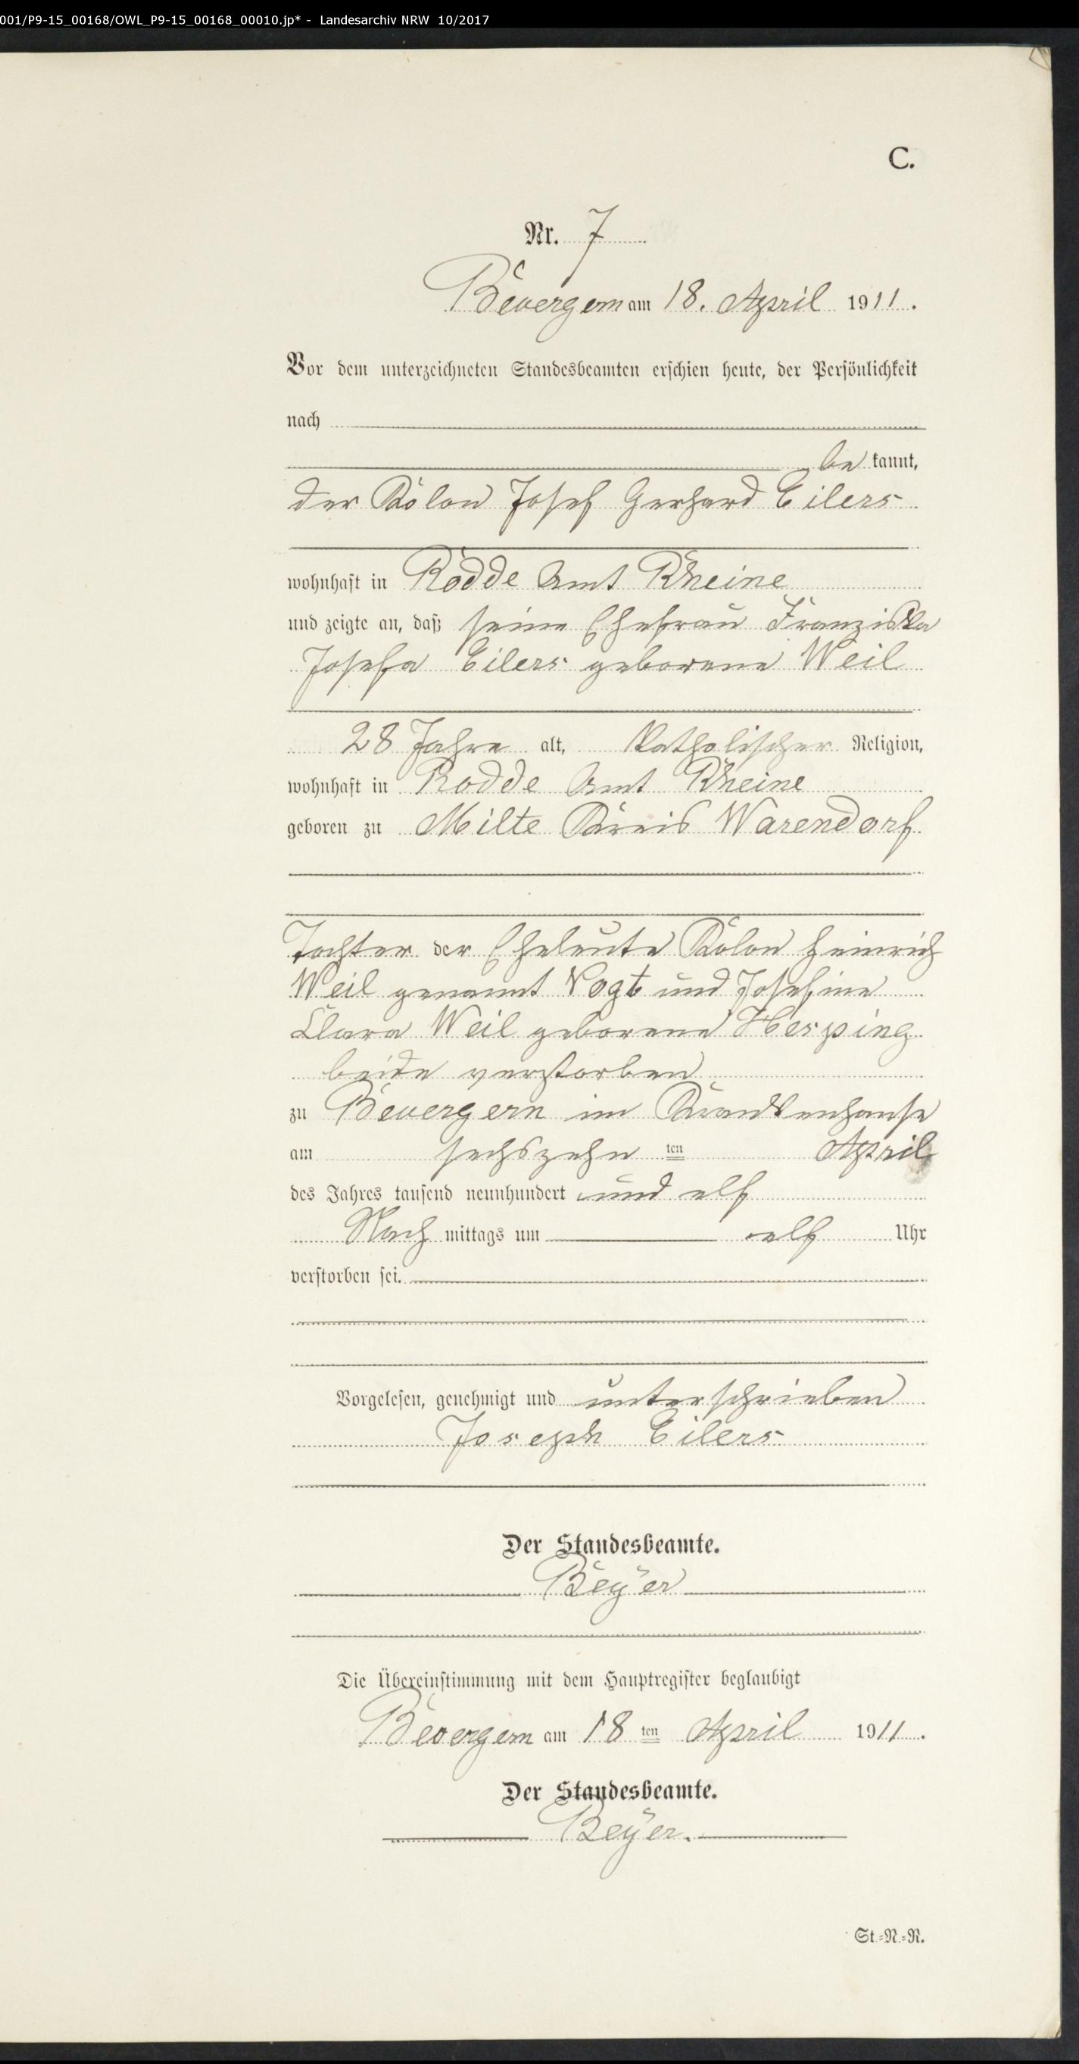 001/P9-15_00168/OWL_P9-15_00168_00010.jp* - Landesarchiv NRW 10/2017
C.
Nr. 7
Bevergern am 18. April 1911.
Vor dem unterzeichneten Standesbeamten erschien heute, der Persönlichkeit
nach
be kannt,
der Kolon Josef Gerhard Eilers
wohnhaft in Rodde Amt Rheine
und zeigte an, daß seine Ehefrau Franziska
Josefa Eilers geborene Weil
28 Jahre alt, katholischer Religion,
wohnhaft in Rodde Amt Rheine
geboren zu Milte Kreis Warendorf
Tochter der Eheleute Kolon Heinrich
Weil genannt Vogt und Josefine
Clara Weil geborene Hesping
beide verstorben
zu Bevergern im Krankenhause
am sechszehn ten April
des Jahres tausend neunhundert und elf
Nach mittags um elf Uhr
verstorben sei.
Vorgelesen, genehmigt und unterschrieben
Joseph Eilers
Der Standesbeamte.
Beyer
Die Übereinstimmung mit dem Hauptregister beglaubigt
Bevergern am 18 ten April 1911.
Der Standesbeamte.
Beyer.
St.-N.-R.